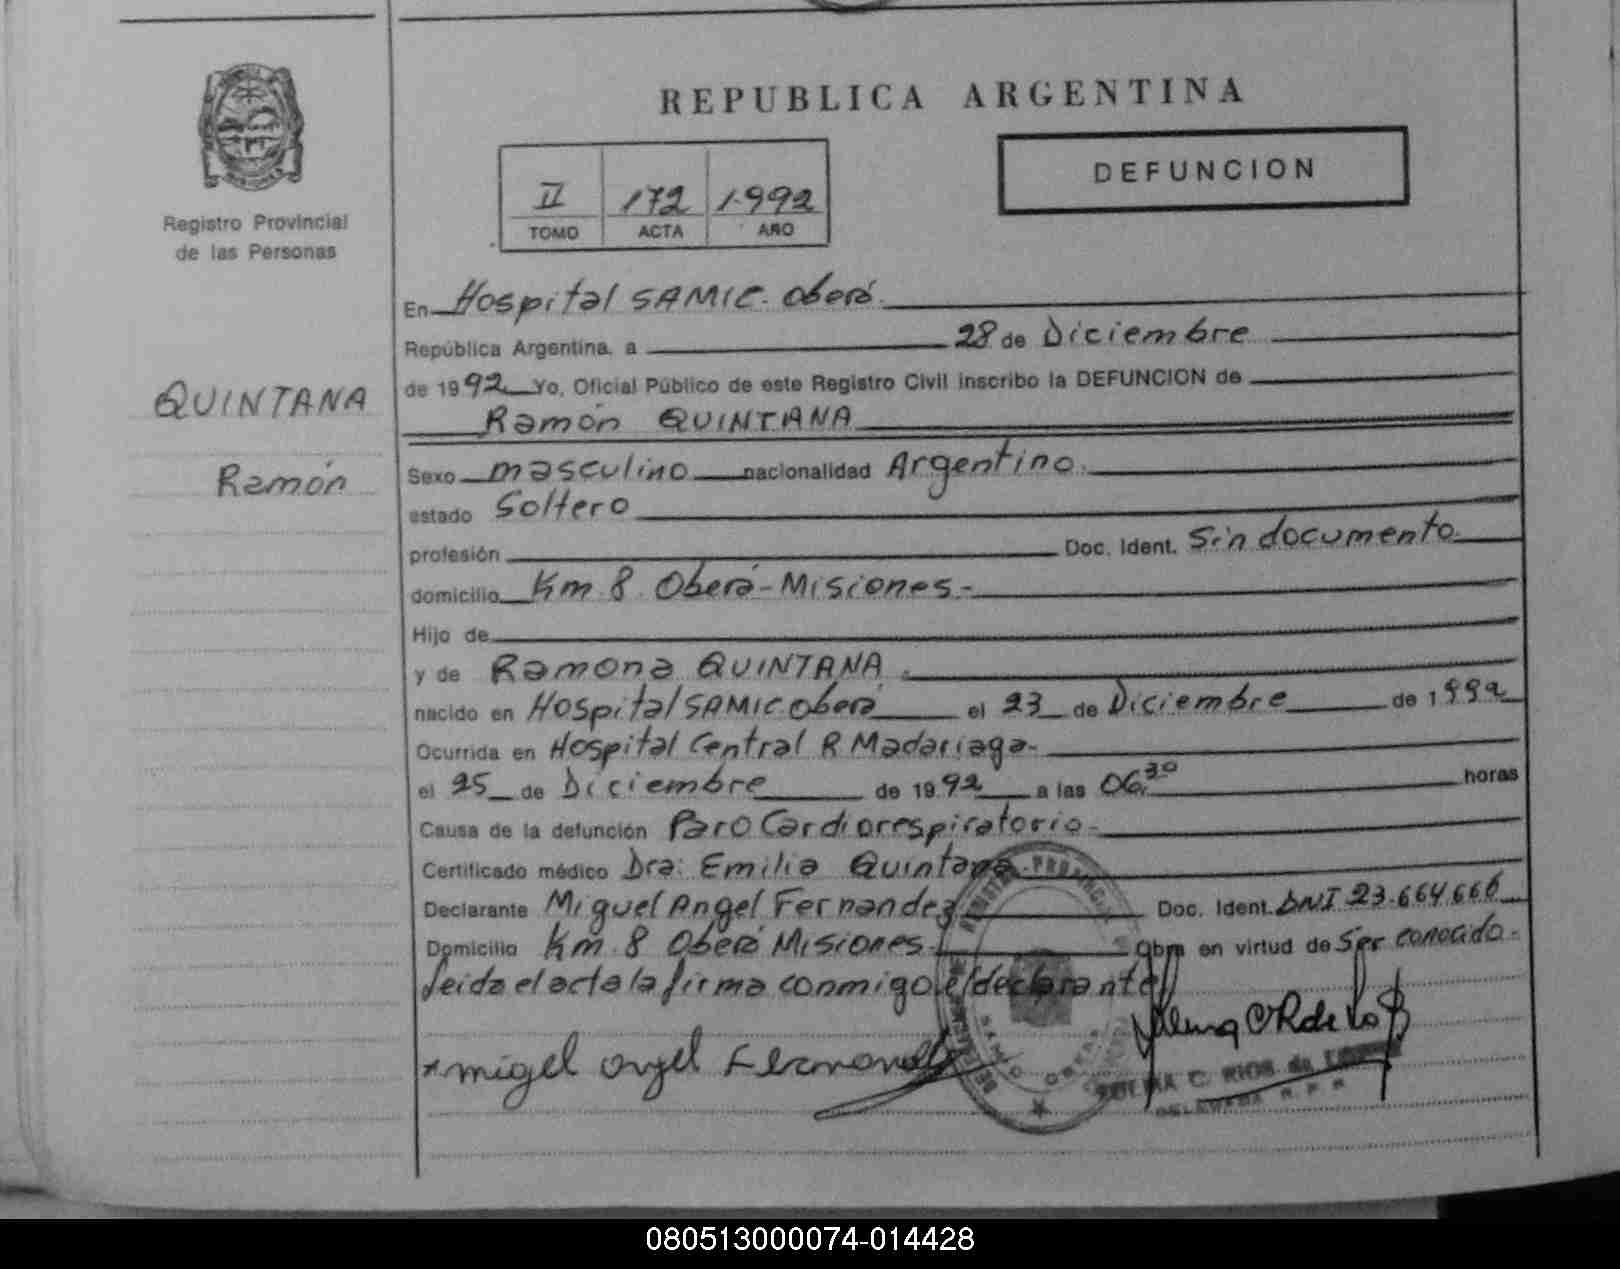 REPUBLICA ARGENTINA
DEFUNCION
II 172 1.992
TOMO ACTA AÑO
Registro Provincial
de las Personas
QUINTANA
Ramón
En Hospital SAMIC. Oberá.
República Argentina, a 28 de Diciembre
de 1992. Yo, Oficial Público de este Registro Civil inscribo la DEFUNCION de
Ramón QUINTANA
Sexo masculino nacionalidad Argentino.
estado Soltero
profesión Doc. Ident. Sin documento.
domicilio Km. 8. Oberá-Misiones-
Hijo de
y de Ramona QUINTANA.
nacido en Hospital SAMIC Oberá el 23 de Diciembre de 1992
Ocurrida en Hospital Central R Madariaga-
el 25 de Diciembre de 1992 a las 06,30 horas
Causa de la defunción Paro Cardiorespiratorio-
Certificado médico Dra: Emilia Quintana-
Declarante Miguel Angel Fernandez Doc. Ident. DNI 23.664.666
Domicilio Km. 8 Oberá Misiones- Obra en virtud de Ser conocido-
leida el acta la firma conmigo el declarante
migel angel Fernandez
C. RIOS de
DELEGADA R. P. P.
080513000074-014428